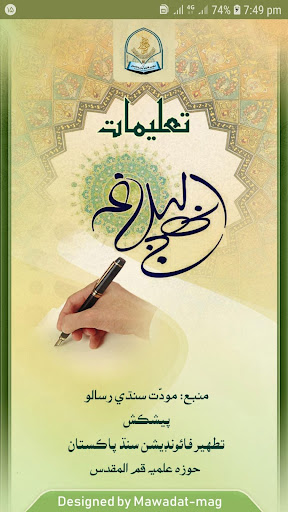 ۱۵ 4G 74% 7:49 pm
تعليمات
نهج البلاغه
منبع: مودّت سنڌي رسالو
پيشڪش
تطهير فائونڊيشن سنڌ پاڪستان
حوزه علميه قم المقدس
Designed by Mawadat-mag